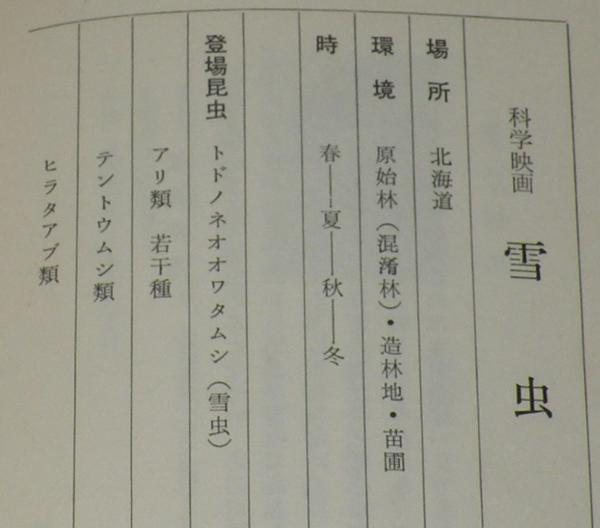 科学映画 雪虫
場所 北海道
環境 原始林（混淆林）・造林地・苗圃
時 春――夏――秋――冬
登場昆虫 トドノネオオワタムシ（雪虫）
アリ類 若干種
テントウムシ類
ヒラタアブ類